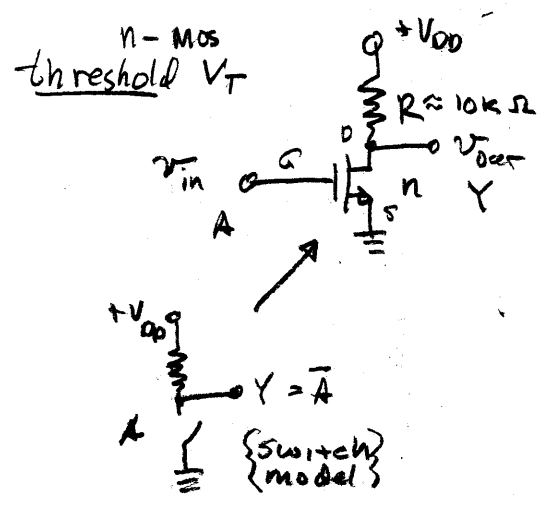 n-MOS
threshold V_T
+V_DD
R ≈ 10K Ω
D
G
v_in
v_out
A
n
S
Y
+V_DD
Y = A̅
A
{switch}
{model}